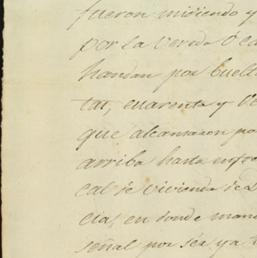 fueron midiendo y
por la vereda
por buelt
tat, cuarenta y
que alcansaron po
arriba hasta enfre
cal de vivienda de D
cia, en donde man
señal por ser ya t